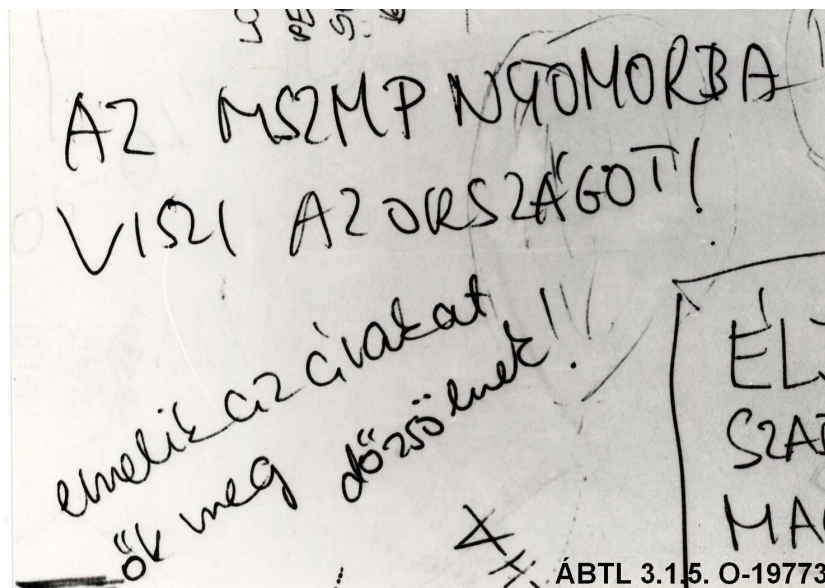 AZ MSZMP NYOMORBA
VISZI AZ ORSZÁGOT!
emelik az árakat
ők meg dőzsölnek!!
ÉL
SZA
MA
ÁBTL 3.1.5. O-19773